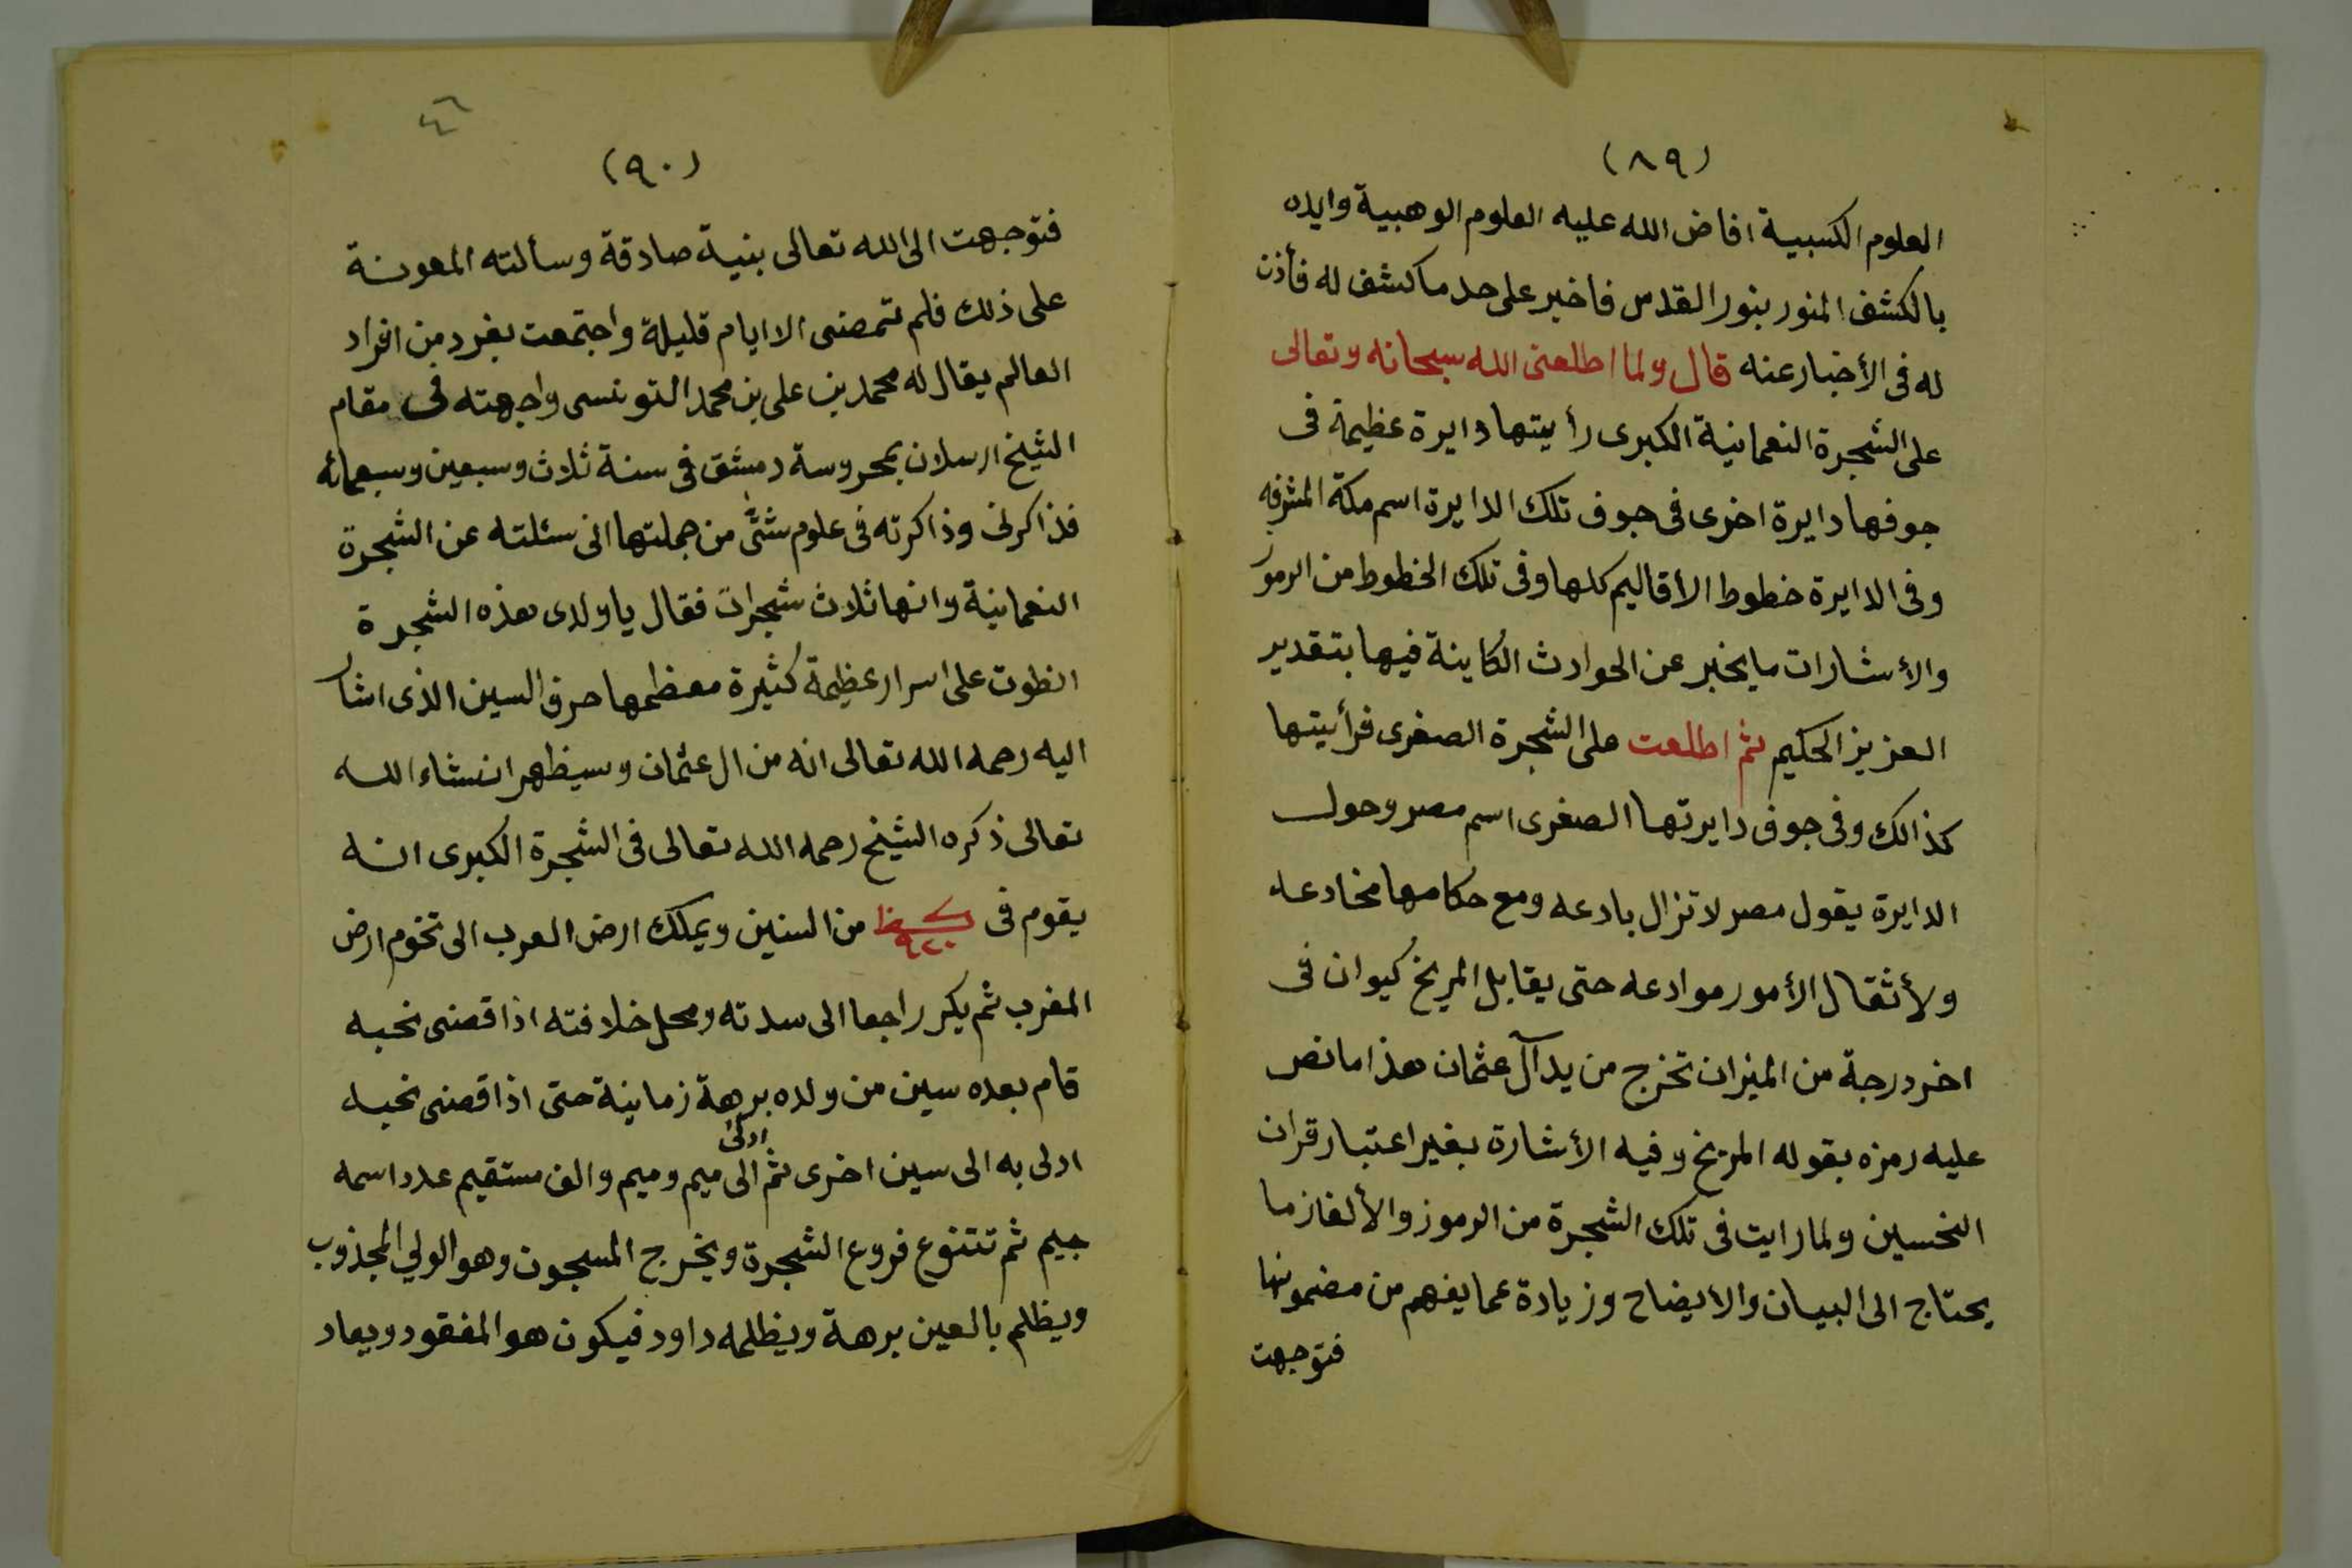 (٨٩)
العلوم الكسبية افاض الله عليه العلوم الوهبية وايده
بالكشف المنور بنور القدس فاخبر على حد ما كشف له فأذن
له فى الأخبار عنه قال ولما اطلعنى الله سبحانه وتعالى
على الشجرة النعمانية الكبرى رأيتها دايرة عظيمة فى
جوفها دايرة اخرى فى جوف تلك الدايرة اسم مكة المشرفه
وفى الدايرة خطوط الأقاليم كلها وفى تلك الخطوط من الرموز
والأشارات ما يخبر عن الحوادث الكاينة فيها بتقدير
العزيز الحكيم ثم اطلعت على الشجرة الصغرى فرأيتها
كذالك وفى جوف دايرتها الصغرى اسم مصر وحول
الدايرة يقول مصر لا تزال بادعه ومع حكامها مخادعه
ولأثقال الأمور موادعه حتى يقابل المريخ كيوان فى
اخر درجة من الميزان تخرج من يد آل عثمان هذا ما نص
عليه رمزه بقوله المريخ وفيه الأشارة بغير اعتبار قران
النحسين ولما رايت فى تلك الشجرة من الرموز والألغاز ما
يحتاج الى البيان والأيضاح وزيادة عما يفهم من مضمونها
فتوجهت
٤٦
(٩٠)
فتوجهت الى الله تعالى بنية صادقة وسألته المعونة
على ذلك فلم تمضى الا ايام قليلة واجتمعت بفرد من افراد
العالم يقال له محمد بن على بن محمد التونسى واجهته فى مقام
الشيخ ارسلان بمحروسة دمشق فى سنة ثلاث وسبعين وسبعمائه
فذاكرنى وذاكرته فى علوم شتّى من جملتها انى سئلته عن الشجرة
النعمانية وانها ثلاث شجرات فقال يا ولدى هذه الشجرة
انطوت على اسرار عظيمة كثيرة معظمها حرف السين الذى اشار
اليه رحمه الله تعالى انه من ال عثمان وسيظهر انشاء الله
تعالى ذكره الشيخ رحمه الله تعالى فى الشجرة الكبرى انه
يقوم فى ٩٢٠ من السنين ويملك ارض العرب الى تخوم ارض
المغرب ثم يكر راجعا الى سدته ومحل خلافته اذا قضى نحبه
قام بعده سين من ولده برهة زمانية حتى اذا قضى نحبه
ادلى به الى سين اخرى ثم ادلى الى ميم وميم والف مستقيم عدد اسمه
جيم ثم تتنوع فروع الشجرة ويخرج المسجون وهو الولي المجذوب
ويظلم بالعين برهة ويظلمه داود فيكون هو المفقود ويعاد